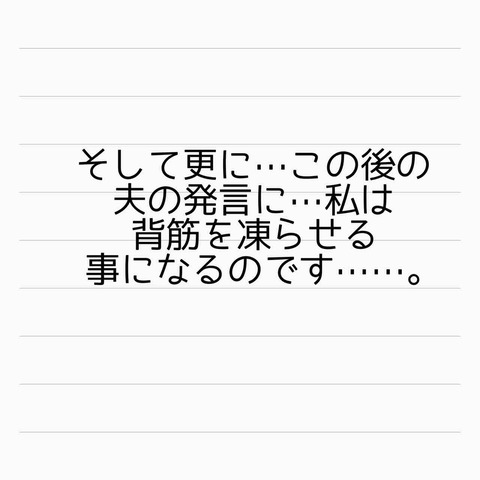 そして更に…この後の
夫の発言に…私は
背筋を凍らせる
事になるのです……。